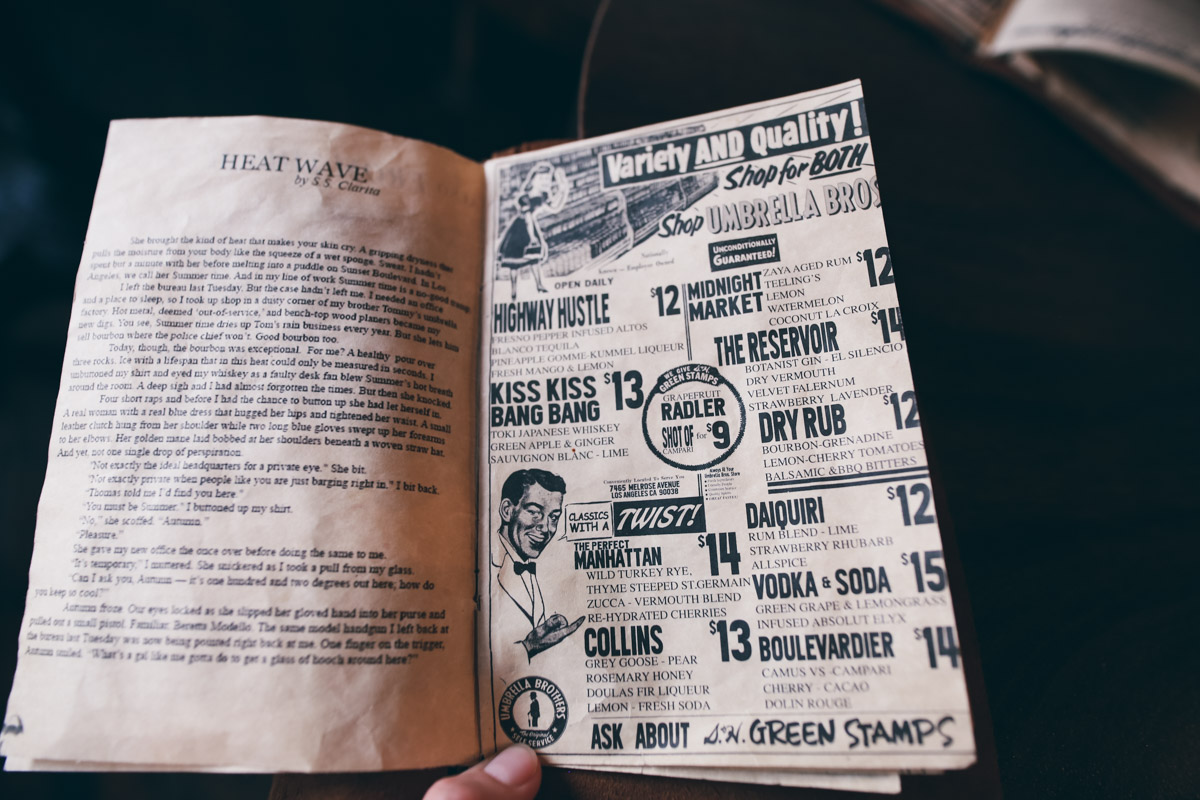 HEAT WAVE
by S.S. Clarita
She brought the kind of heat that makes your skin cry. A gripping dryness that
pulls the moisture from your body like the squeeze of a wet sponge. Sweat. I hadn't
spent but a minute with her before melting into a puddle on Sunset Boulevard. In Los
Angeles, we call her Summer time. And in my line of work Summer time is a no-good
I left the bureau last Tuesday. But the case hadn't left me. I needed an office
and a place to sleep, so I took up shop in a dusty corner of my brother Tommy's umbrella
factory. Hot metal, deemed 'out-of-service,' and bench-top wood planers became my
new digs. You see, Summer time dries up Tom's rain business every year. But she lets him
sell bourbon where the police chief won't. Good bourbon too.
Today, though, the bourbon was exceptional. For me? A healthy pour over
three rocks. Ice with a lifespan that in this heat could only be measured in seconds. I
unbuttoned my shirt and eyed my whiskey as a faulty desk fan blew Summer's hot breath
around the room. A deep sigh and I had almost forgotten the times. But then she knocked.
Four short raps and before I had the chance to button up she had let herself in.
A real woman with a real blue dress that hugged her hips and tightened her waist. A small
leather clutch hung from her shoulder while two long blue gloves swept up her forearms
to her elbows. Her golden mane laid bobbed at her shoulders beneath a woven straw hat.
And yet, not one single drop of perspiration.
"Not exactly the ideal headquarters for a private eye." She bit.
"Not exactly private when people like you are just barging right in." I bit back.
"Thomas told me I'd find you here."
"You must be Summer." I buttoned up my shirt.
"No," she scoffed. "Autumn."
"Pleasure."
She gave my new office the once over before doing the same to me.
"It's temporary," I muttered. She snickered as I took a pull from my glass.
"Can I ask you, Autumn — it's one hundred and two degrees out here; how do
you keep so cool?"
Autumn froze. Our eyes locked as she slipped her gloved hand into her purse and
pulled out a small pistol. Familiar. Beretta Modello. The same model handgun I left back at
the bureau last Tuesday was now being pointed right back at me. One finger on the trigger,
Autumn smiled. "What's a gal like me gotta do to get a glass of hooch around here?"
Variety AND Quality!
Shop for BOTH
Shop UMBRELLA BROS
UNCONDITIONALLY
GUARANTEED!
Nationally
Known — Employee Owned
OPEN DAILY
HIGHWAY HUSTLE $12
FRESNO PEPPER INFUSED ALTOS
BLANCO TEQUILA
PINEAPPLE GOMME-KUMMEL LIQUEUR
FRESH MANGO & LEMON
KISS KISS
BANG BANG $13
TOKI JAPANESE WHISKEY
GREEN APPLE & GINGER
SAUVIGNON BLANC - LIME
MIDNIGHT
MARKET $12
ZAYA AGED RUM
TEELING'S
LEMON
WATERMELON
COCONUT LA CROIX
THE RESERVOIR $14
BOTANIST GIN - EL SILENCIO
DRY VERMOUTH
VELVET FALERNUM
STRAWBERRY LAVENDER
WE GIVE S&H
GREEN STAMPS
GRAPEFRUIT
RADLER
SHOT OF for $9
CAMPARI
DRY RUB $12
BOURBON-GRENADINE
LEMON-CHERRY TOMATOES
BALSAMIC &BBQ BITTERS
Conveniently Located To Serve You
7465 MELROSE AVENUE
LOS ANGELES CA 90038
Always At Your
Umbrella Bros. Store
CLASSICS
WITH A TWIST!
THE PERFECT
MANHATTAN $14
WILD TURKEY RYE,
THYME STEEPED ST.GERMAIN
ZUCCA - VERMOUTH BLEND
RE-HYDRATED CHERRIES
COLLINS $13
GREY GOOSE - PEAR
ROSEMARY HONEY
DOULAS FIR LIQUEUR
LEMON - FRESH SODA
DAIQUIRI $12
RUM BLEND - LIME
STRAWBERRY RHUBARB
ALLSPICE
VODKA & SODA $15
GREEN GRAPE & LEMONGRASS
INFUSED ABSOLUT ELYX
BOULEVARDIER $14
CAMUS VS -CAMPARI
CHERRY - CACAO
DOLIN ROUGE
UMBRELLA BROTHERS
The Original
SELF SERVICE
ASK ABOUT S.&H. GREEN STAMPS